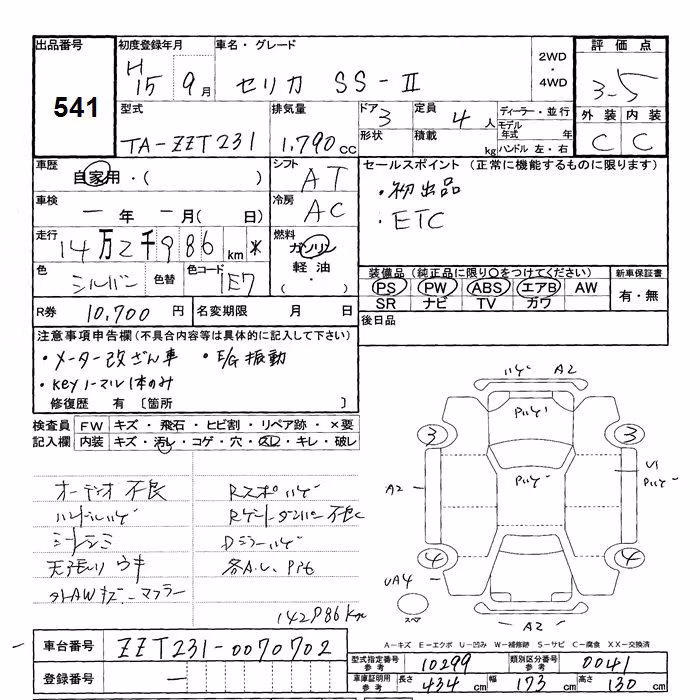 出品番号
541
初度登録年月
H15 9月
車名・グレード
セリカ SS-II
2WD
・
4WD
評価点
3-5
外装 内装
C C
型式
TA-ZZT231
排気量
1,790cc
ドア 3
形状
定員 4人
積載 kg
ディーラー・並行
モデル年式 年
ハンドル 左・右
車歴
自家用・( )
シフト
AT
セールスポイント (正常に機能するものに限ります)
・初出品
・ETC
車検
一年 一月( 日)
冷房
AC
走行
14万2千986km *
燃料
ガソリン
軽油
( ・ )
色
シルバー
色替
色コード
1E7
装備品 (純正品に限り○をつけてください)
PS PW ABS エアB AW
SR ナビ TV カワ
新車保証書
有・無
R券 10,700円
名変期限 月 日
後日品
注意事項申告欄 (不具合内容等は具体的に記入して下さい)
・メーター改ざん車 ・E/G振動
・Keyノーマル1本のみ
修復歴 有 〔箇所 〕
検査員 FW キズ・飛石・ヒビ割・リペア跡・×要
記入欄 内装 キズ・汚レ・コゲ・穴・スレ・キレ・破レ
オーディオ不良
ハンドルハゲ
シートシミ
天張りウキ
外AWキズ・マフラー
Rスポハゲ
Rゲートダンパー不良
Dミラーハゲ
各A.U.
142986Km
ハゲ A2
3 3
A2
U1
4 4
UA4
スペア
A2
A-キズ E-エクボ U-凹み W-補修跡 S-サビ C-腐食 XX-交換済
車台番号 ZZT231-0070702
登録番号 一
型式指定番号 参考 10299
類別区分番号 参考 0041
車庫証明用 参考 長さ 434cm 幅 173cm 高さ 130cm